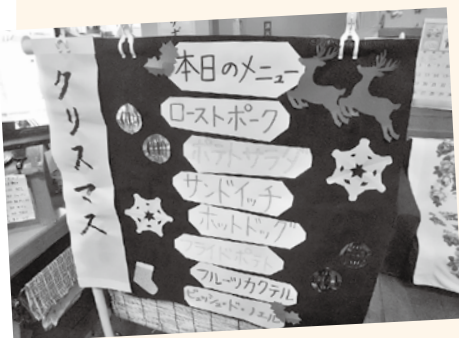 クリスマス
本日のメニュー
ローストポーク
ポテトサラダ
サンドイッチ
ホットドッグ
フライドポテト
フルーツカクテル
ビュッシュ・ド・ノエル